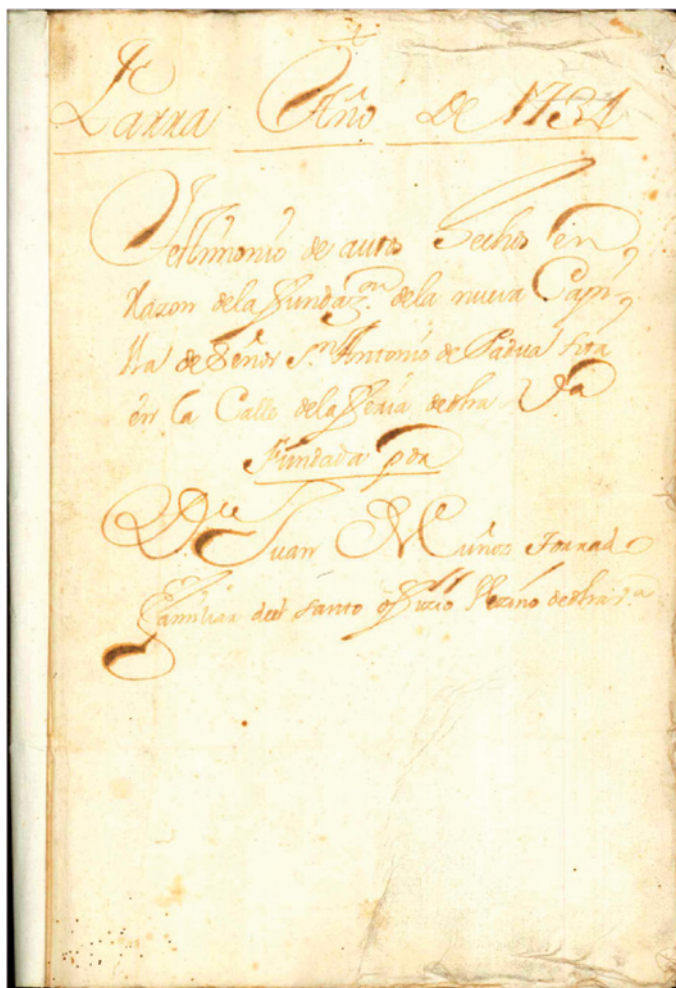 Parra Año de 1731
Testimonio de autos hechos en
Razon dela Fundaz.on de la nueva Capi-
lla de Señor S.n Antonio de Padua sita
en la Calle dela Feria de dha V.a
Fundada por
D. Juan Muñoz Jurado
Familiar del Santo ofizio Vezino de dha V.a